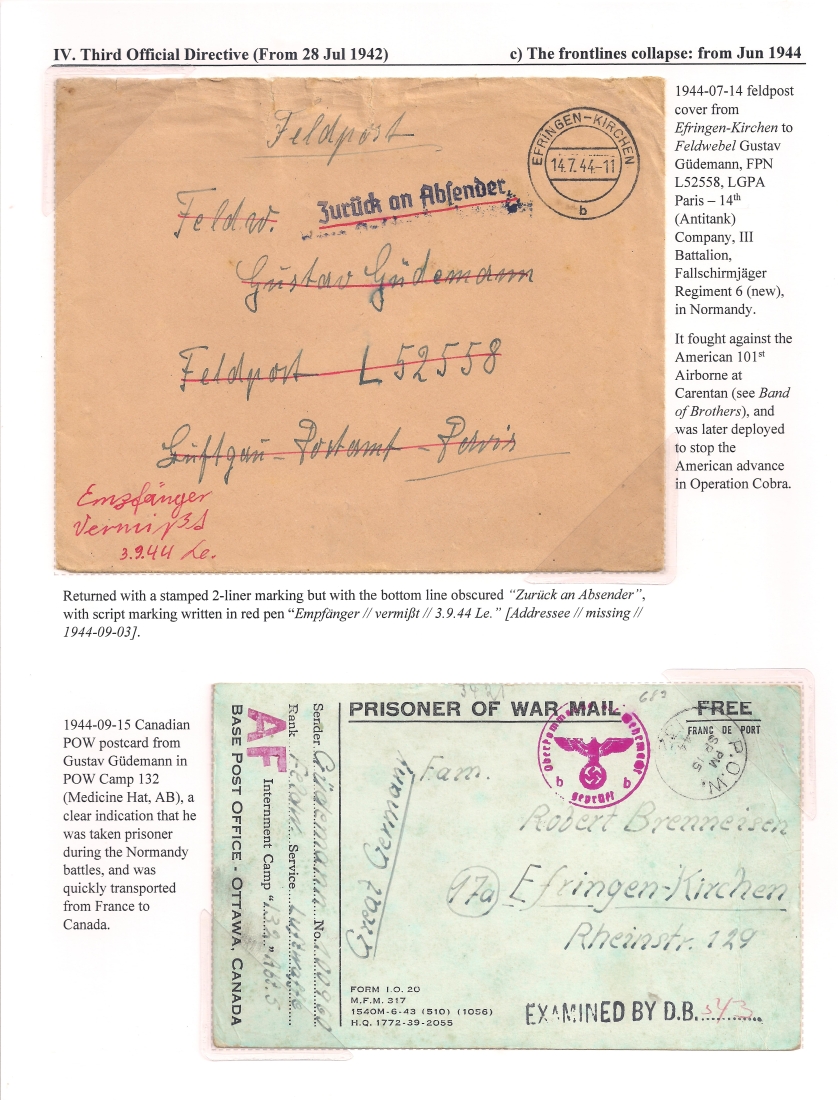 IV. Third Official Directive (From 28 Jul 1942) c) The frontlines collapse: from Jun 1944
Feldpost
EFRINGEN-KIRCHEN
14.7.44.-11
b
Zurück an Absender
Feldw.
Gustav Güdemann
Feldpost L 52558
Luftgau-Postamt - Pervis
Empfänger
Vermißt
3.9.44 Le.
1944-07-14 feldpost
cover from
Efringen-Kirchen to
Feldwebel Gustav
Güdemann, FPN
L52558, LGPA
Paris – 14th
(Antitank)
Company, III
Battalion,
Fallschirmjäger
Regiment 6 (new),
in Normandy.
It fought against the
American 101st
Airborne at
Carentan (see Band
of Brothers), and
was later deployed
to stop the
American advance
in Operation Cobra.
Returned with a stamped 2-liner marking but with the bottom line obscured “Zurück an Absender”,
with script marking written in red pen “Empfänger // vermißt // 3.9.44 Le.” [Addressee // missing //
1944-09-03].
1944-09-15 Canadian
POW postcard from
Gustav Güdemann in
POW Camp 132
(Medicine Hat, AB), a
clear indication that he
was taken prisoner
during the Normandy
battles, and was
quickly transported
from France to
Canada.
PRISONER OF WAR MAIL
FREE
FRANC DE PORT
689
Oberkommando Wehrmacht
b b
geprüft
P.O.W.
PM
SP 15
Fam.
Robert Brenneisen
17a Efringen-Kirchen
Rheinstr. 129
Germany
Sender Güdemann No.
Rank Feldw. Service Luftwaffe
Internment Camp “132”
AF
BASE POST OFFICE - OTTAWA, CANADA
FORM I.O. 20
M.F.M. 317
1540M-6-43 (510) (1056)
H.Q. 1772-39-2055
EXAMINED BY D.B. 543